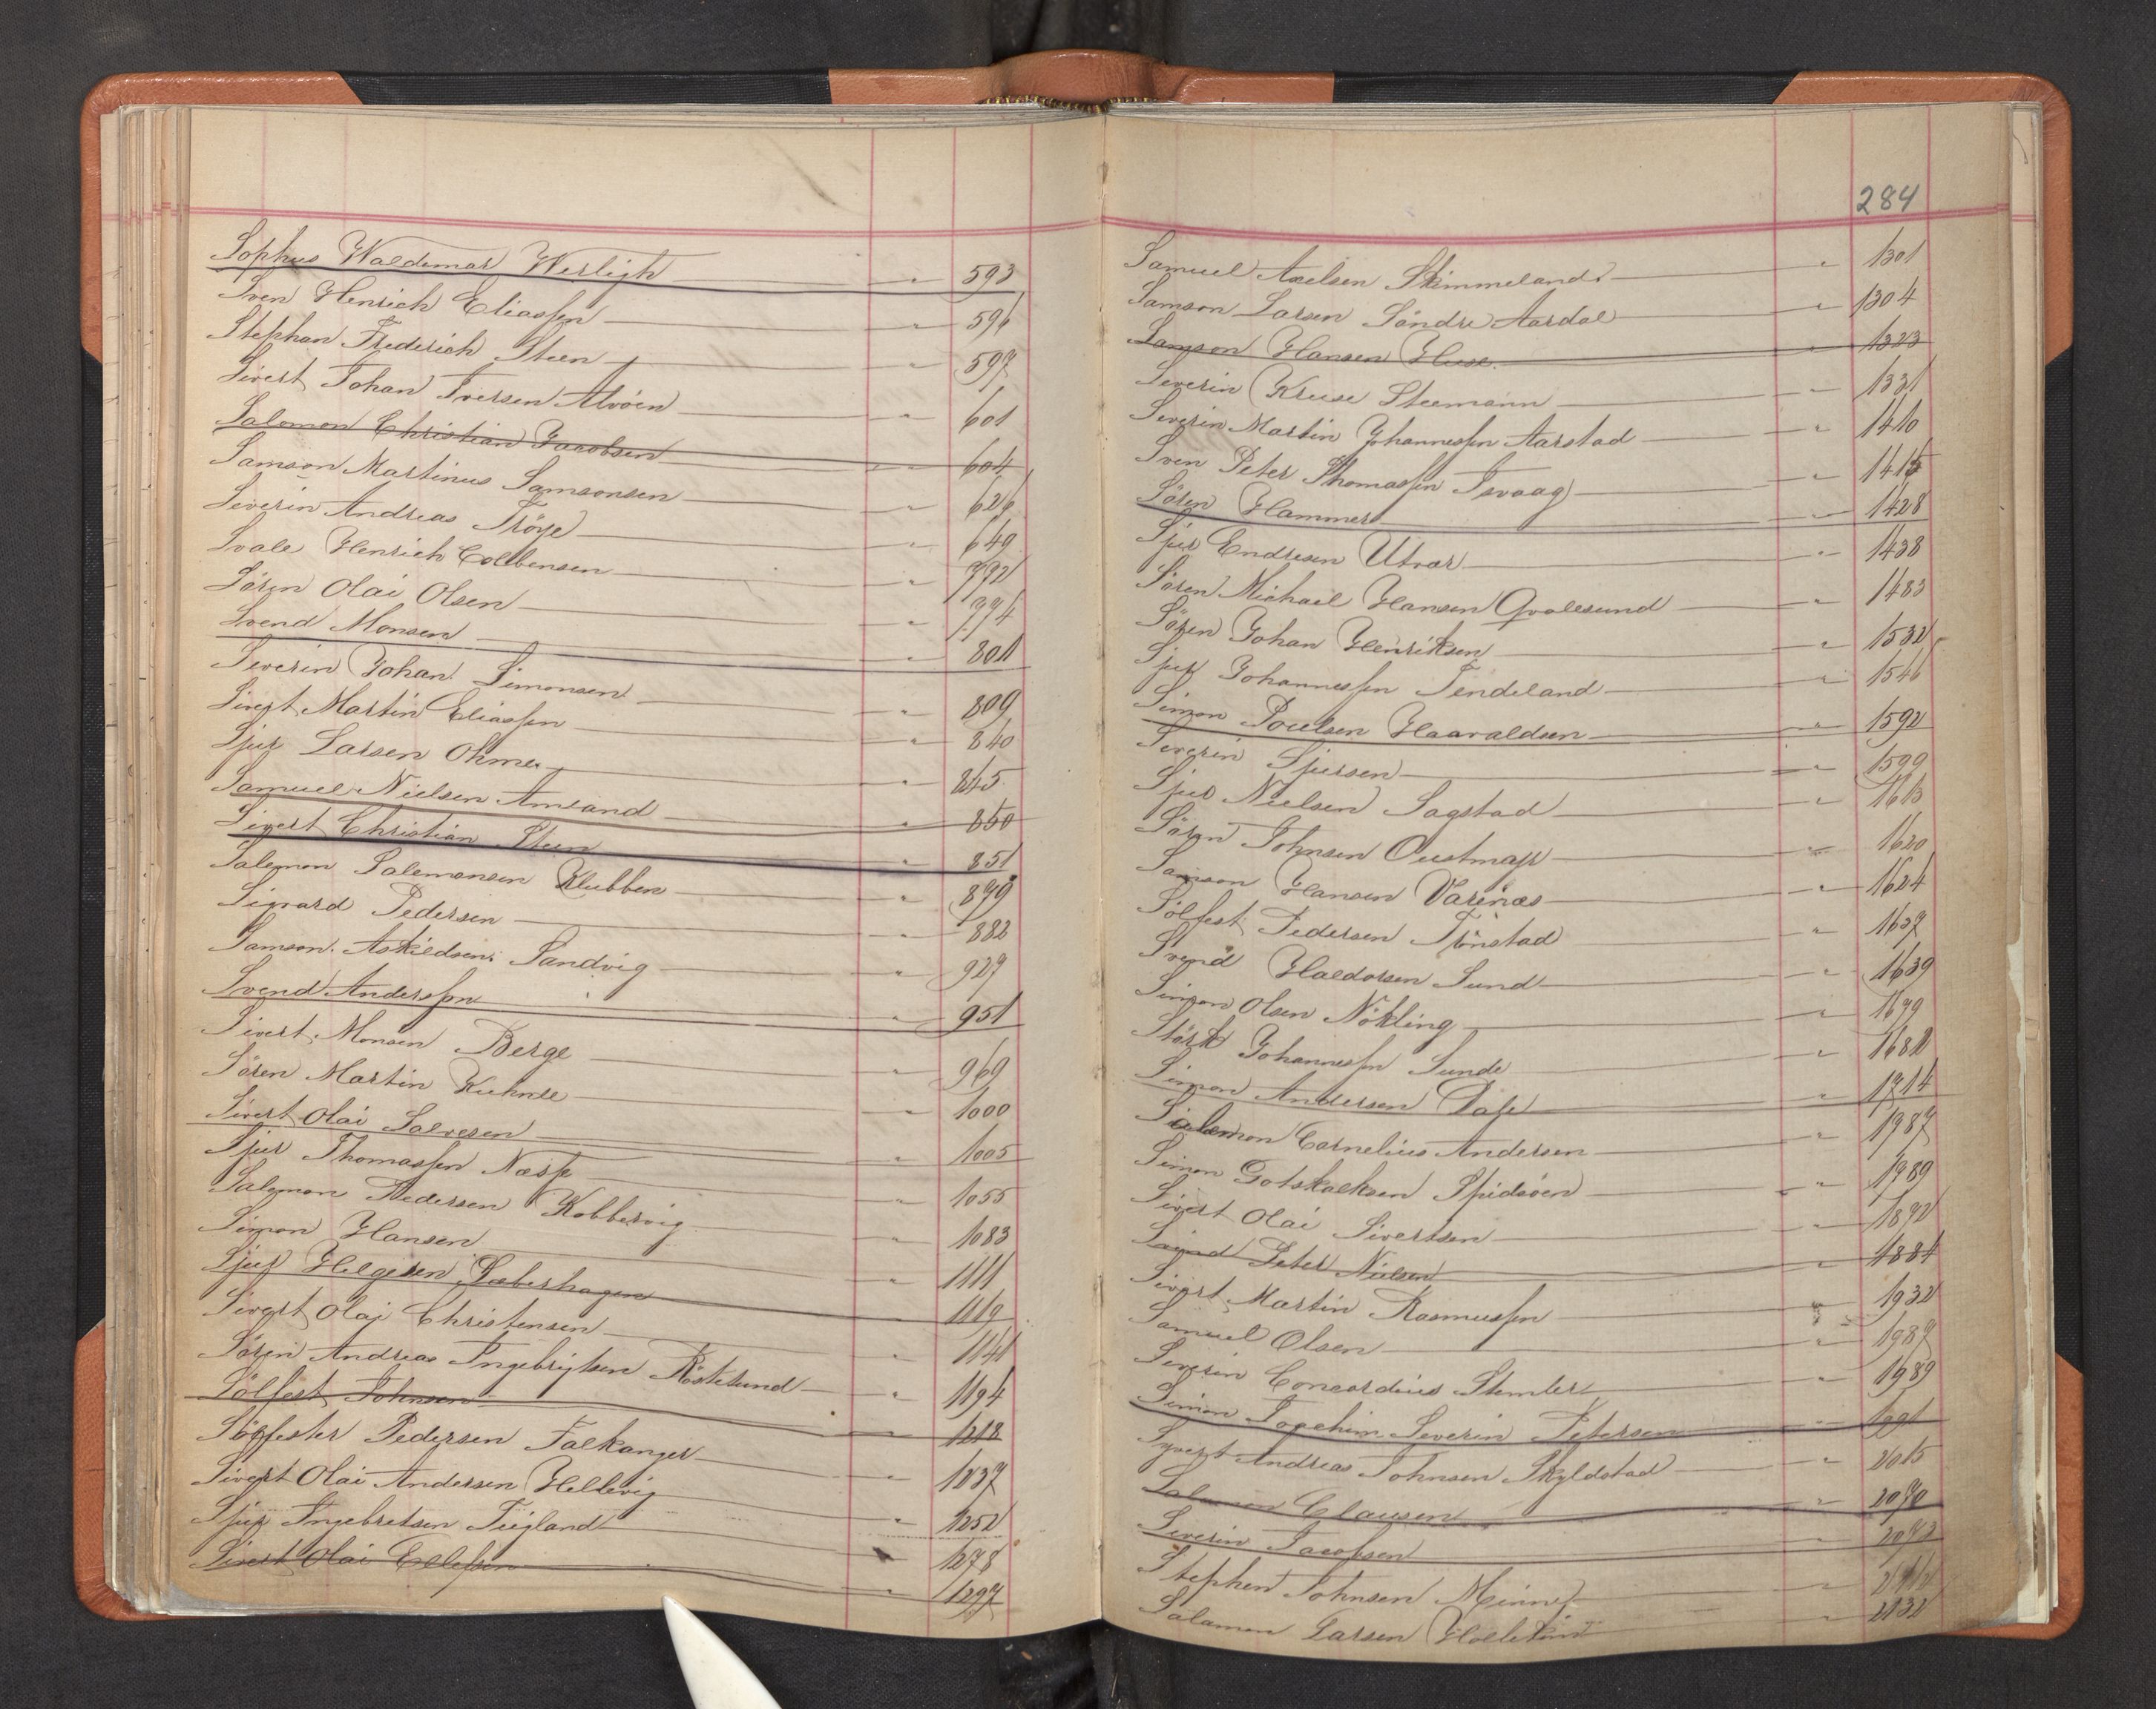 Sophus Waldemar Werligh " 593
Sven Henrich Eliassen " 596
Stephan Frederich Steen " 597
Sivert Johan Iversen Alvöen " 601
Salomon Christian Jacobsen " 604
Samson Martinus Samsonsen " 629
Severin Andreas Tröye " 649
Svale Henrich Colbensen " 772
Sören Olai Olsen " 774
Svend Monsen " 801
Severin Johan Simonsen " 809
Sivert Martin Eliassen " 840
Sjur Larsen Ohme " 845
Samuel Nielsen Amland " 850
Sivert Christian Steen " 851
Salomon Salomonsen Klubben " 879
Sigvard Pedersen " 882
Samson Askildsen Sandvig " 927
Svend Anderssen " 951
Sivert Monsen Berge " 969
Sören Martin Kuhnle " 1000
Sivert Olai Salvesen " 1005
Sjur Thomassen Næsse " 1055
Salomon Pedersen Kobbervig " 1083
Simon Hansen " 1111
Sjur Helgesen " 1119
Sivert Olai Christensen " 1141
Sören Andreas Ingebrigtsen Röstesund " 1194
Sölfest Johnsen " 1218
Sölfester Pedersen Falkanger " 1237
Sivert Olai Andersen Hellevig " 1252
Sjur Ingebretsen Tiegland " 1278
Sivert Olai Ellefsen " 1297
284
Samuel Axelsen Skimmeland " 1301
Samson Larsen Söndre Aardal " 1304
Samson Hansen Huse " 1323
Severin Kruse Steemann " 1331
Severin Martin Johannessen Aarstad " 1410
Sven Peter Thomassen Isvaag " 1415
Sören Hammer " 1428
Sjur Endresen Utvær " 1438
Sören Michael Hansen Qvalesund " 1483
Sören Johan Henriksen " 1532
Sjur Johannessen Tendeland " 1546
Simon Poulsen Haavaldsen " 1592
Severin Sjursen " 1599
Sjur Nielsen Sagstad " 1613
Sören Johnsen " 1620
Samson Hansen Varinæs " 1624
Sölfest Pedersen Trönstad " 1637
Svend Haldorsen Sund " 1639
Simon Olsen Nökling " 1679
Störk Johannessen Sunde " 1682
Simon Andersen Dahl " 1714
Salomon Cornelius Andersen " 1787
Simon Gotskalksen Spidsöen " 1789
Sivert Olai Sivertsen " 1892
Peter Nielsen " 1884
Sivert Martin Rasmussen " 1932
Samuel Olsen " 1987
Severin Concordius Stemler " 1989
Simon Joachim Severin Petersen " 1991
Syvert Andreas Johnsen Skyldstad " 2015
Salomon Clausen " 2070
Severin Jacobsen " 2093
Stephen Johnsen Minne "
Salamon Larsen " 2132